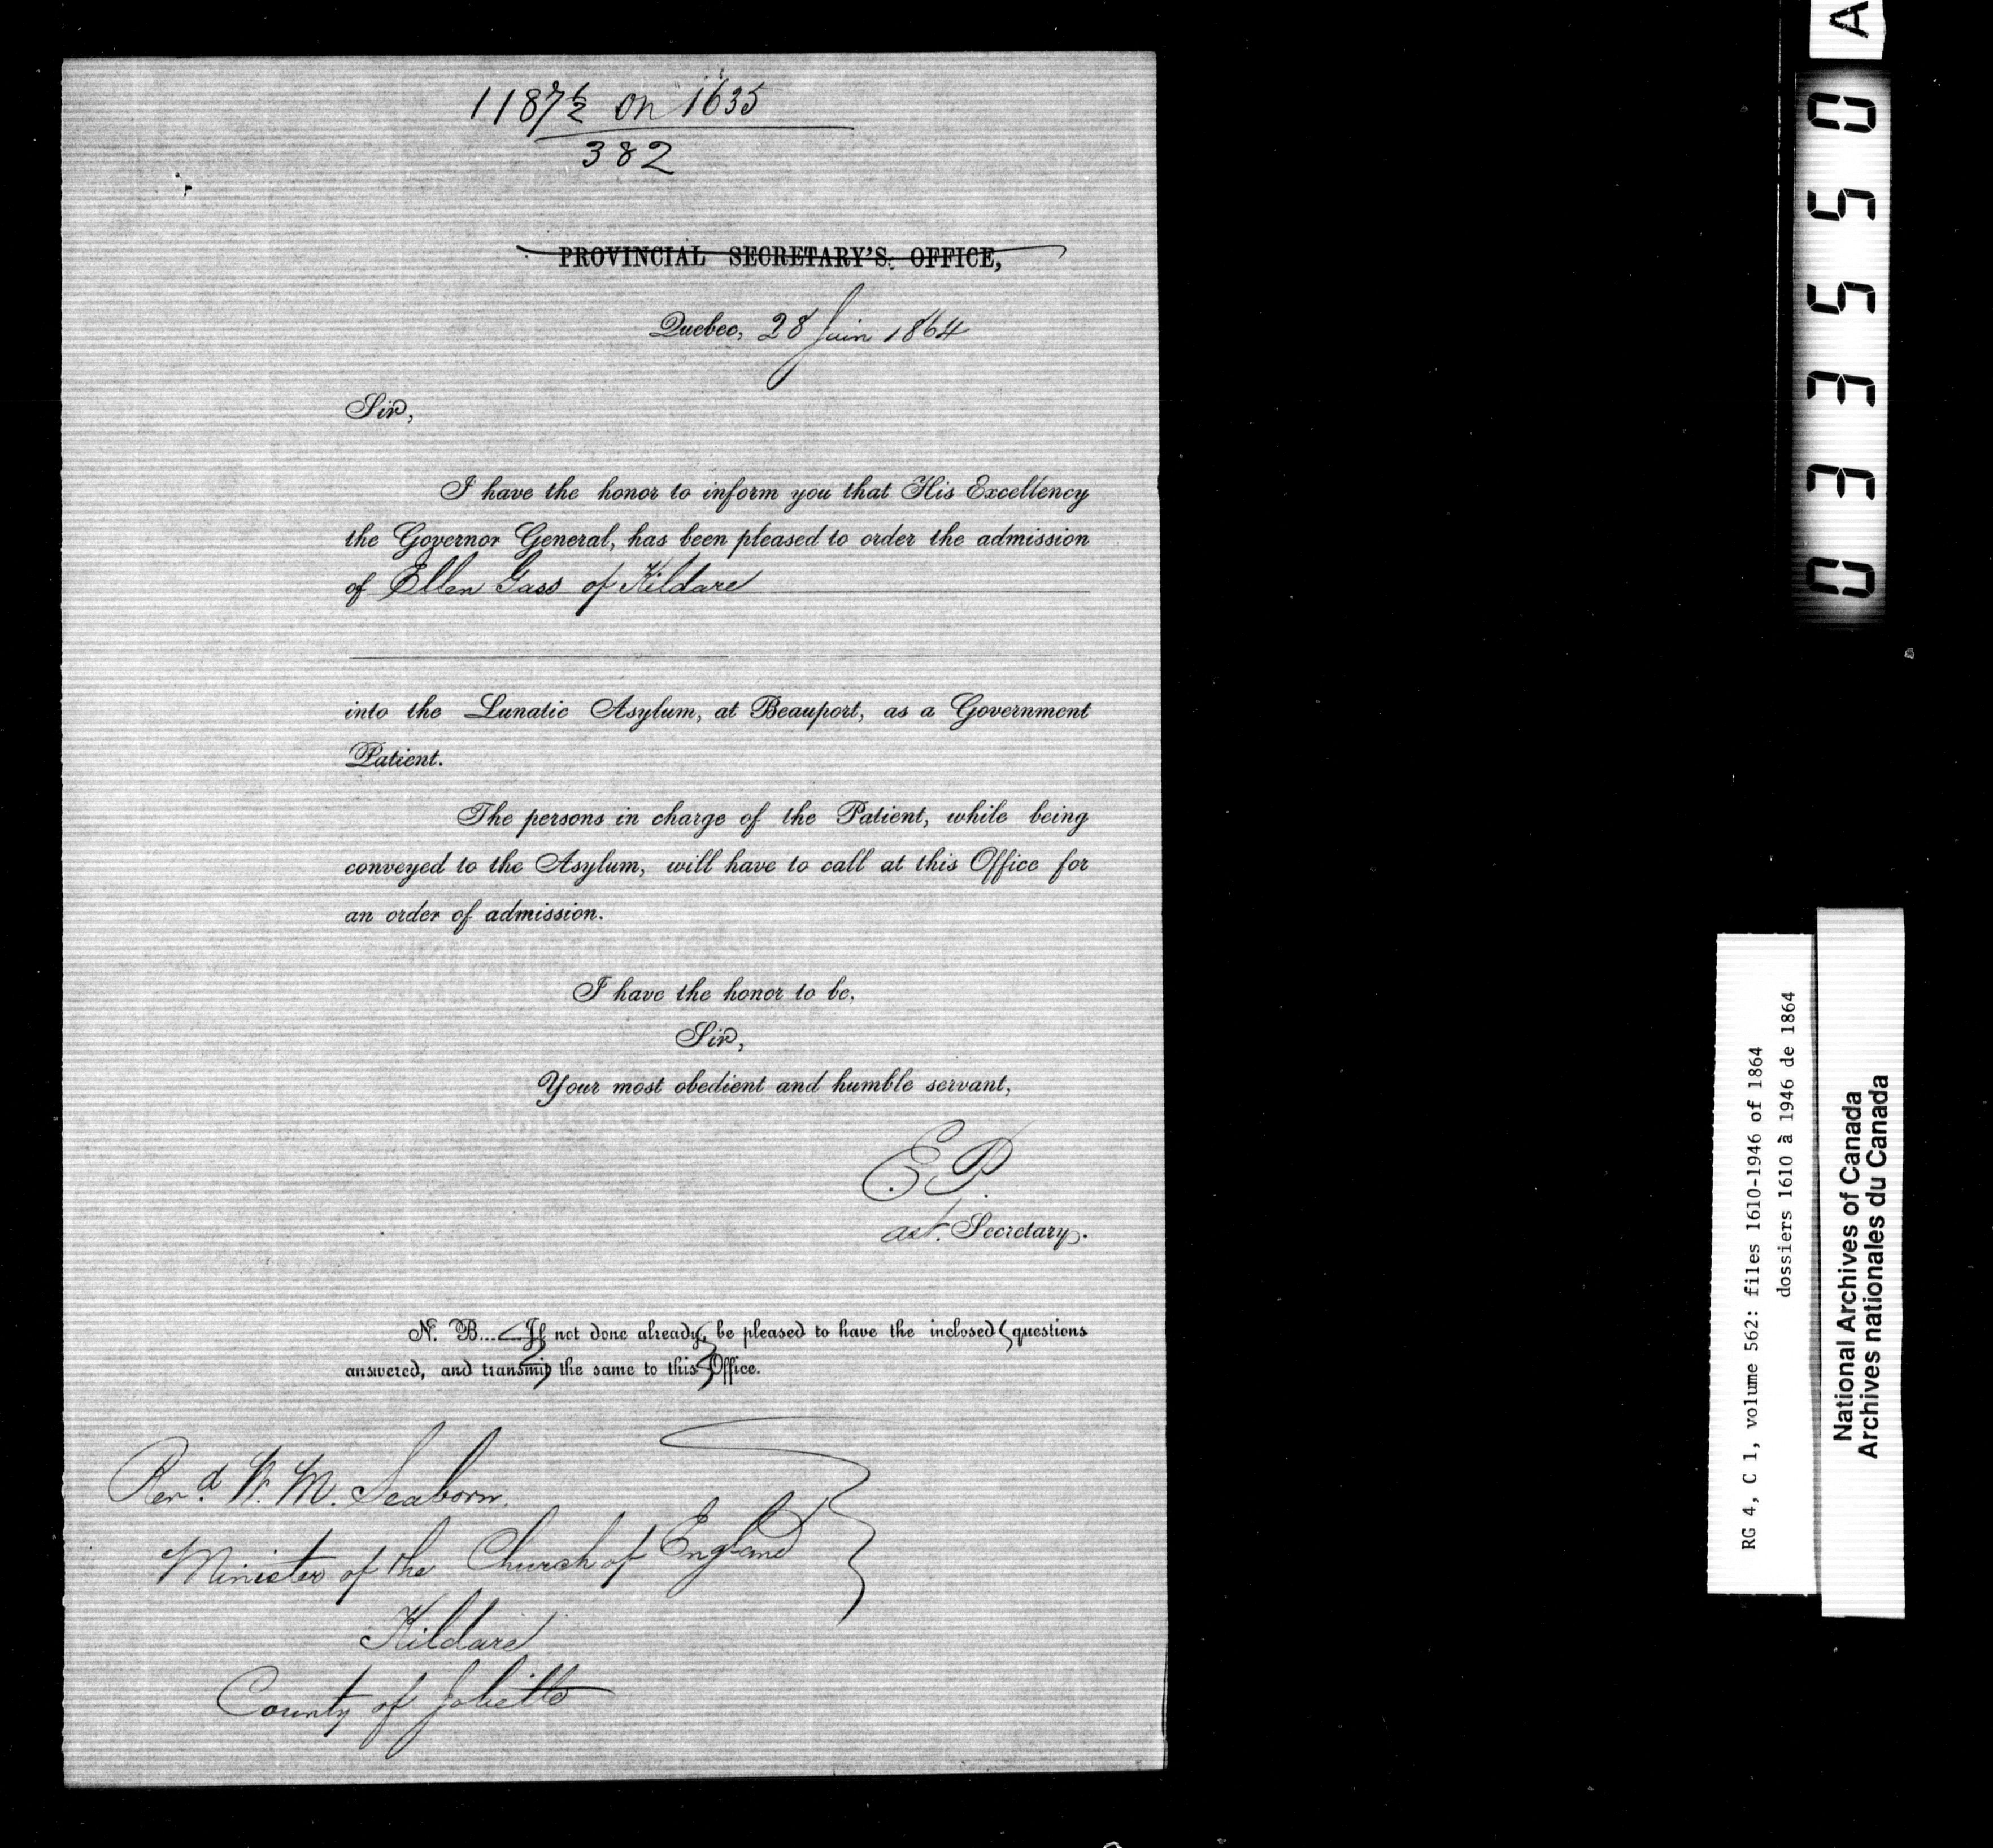 1187½ on 1635
382
PROVINCIAL SECRETARY'S OFFICE,
Quebec, 28 Juin 1864
Sir,
I have the honor to inform you that His Excellency
the Governor General, has been pleased to order the admission
of Ellen Gass of Kildare
into the Lunatic Asylum, at Beauport, as a Government
Patient.
The persons in charge of the Patient, while being
conveyed to the Asylum, will have to call at this Office for
an order of admission.
I have the honor to be,
Sir,
Your most obedient and humble servant,
E. P.
ast. Secretary.
N. B... If not done already, be pleased to have the inclosed questions
answered, and transmit the same to this Office.
Revd. W. M. Seaborn
Minister of the Church of England
Kildare
County of Joliette
A
033550
RG 4, C 1, volume 562: files 1610-1946 of 1864
dossiers 1610 à 1946 de 1864
National Archives of Canada
Archives nationales du Canada